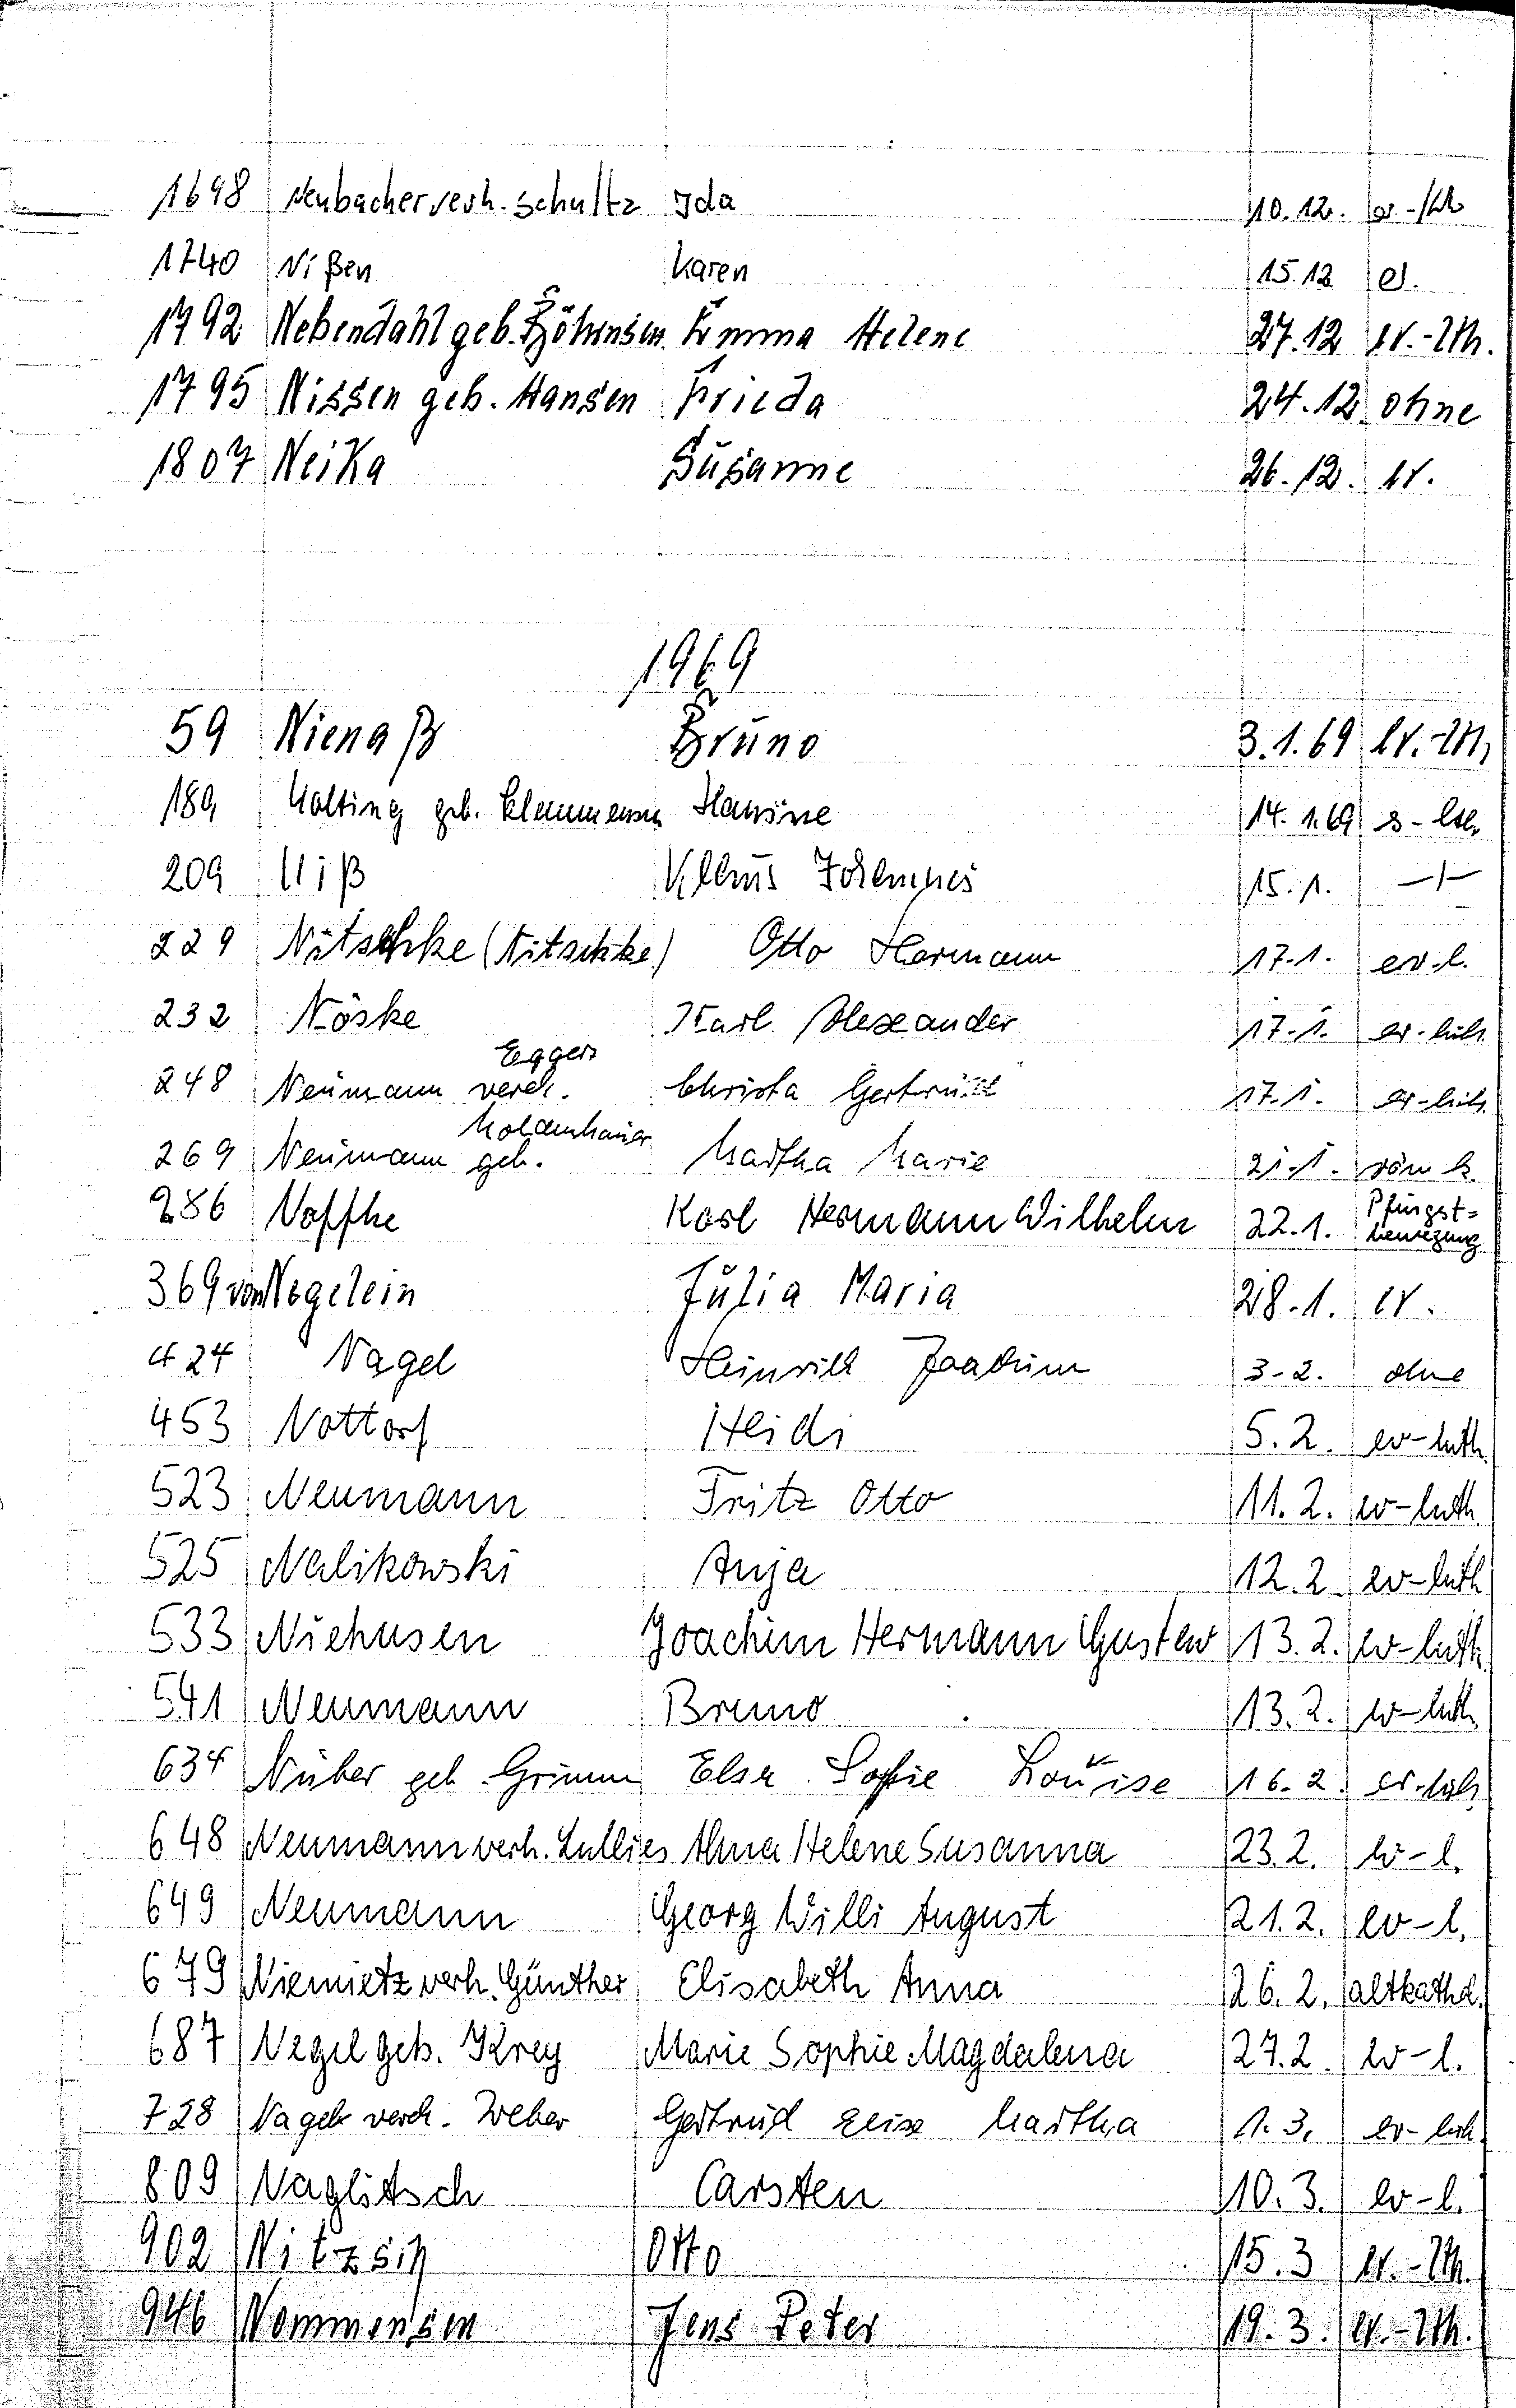 1698 Neubacher verh. Schultz Ida 10.12. ev.-luth
1740 Nißen Karen 15.12 ev.
1792 Nebendahl geb. Böhmsen Emma Helene 27.12 ev.-lth.
1795 Nissen geb. Hansen Frieda 24.12. ohne
1807 Neika Susanne 26.12. ev.
1969
59 Nienaß Bruno 3.1.69 ev.-lth
189 Nolting geb. 14.1.69
209 Niß Klaus Johannes 15.1. —〃—
229 Nitschke (Nitschke) Otto Hermann 17.1. ev.-l.
232 Nöske Karl Alexander 17.1. ev-luth.
Eggers
248 Neumann verh. Christa Gertrud 17.1. ev-luth.
Moldenhauer
269 Neumann geb. Martha Marie 21.1. röm k.
286 Noffke Karl Hermann Wilhelm 22.1. Pfingst=
bewegung
369 von Negelein Julia Maria 28.1. ev.
424 Nagel Heinrich Joachim 3-2. ohne
453 Nottorf Heidi 5.2. ev-luth.
523 Neumann Fritz Otto 11.2. ev-luth.
525 Nalikowski Anja 12.2. ev-luth
533 Niehusen Joachim Hermann Gustav 13.2. ev-luth.
541 Neumann Bruno 13.2. ev-luth.
634 Nüber geb. Grimm Elsa Sofie Louise 16.2. ev-luth.
648 Neumann verh. Lullies Alma Helene Susanna 23.2. ev-l.
649 Neumann Georg Willi August 21.2. ev-l.
679 Niemietz verh. Günther Elisabeth Anna 26.2. altkathol.
687 Nagel geb. Krey Marie Sophie Magdalena 27.2. ev-l.
728 Nagel verh. Weber Gertrud Elise Martha 1.3. ev-luth.
809 Naglitsch Carsten 10.3. ev-l.
902 Nitzsch Otto 15.3 ev.-lth.
946 Nommensen Jens Peter 19.3. ev.-lth.